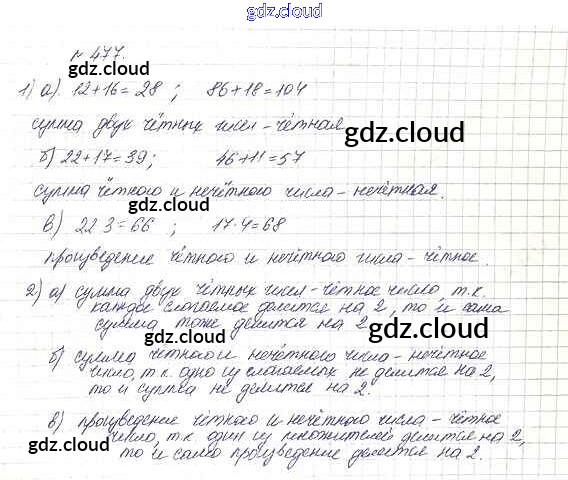 gdz.cloud
№ 477.
gdz.cloud
1) а). 12+16=28 ; 86+18=104
gdz.cloud
сумма двух чётных чисел - чётная.
gdz.cloud
б) 22+17=39; 46+11=57
gdz.cloud
сумма чётного и нечётного числа - нечётная.
gdz.cloud
в) 22 3=66 ; 17·4=68
произведение чётного и нечётного числа - чётное.
gdz.cloud
2) а) сумма двух чётных чисел - чётное число, т.к.
каждое слагаемое делится на 2, то и сама
сумма тоже делится на 2.
gdz.cloud
б) сумма чётного и нечётного числа - нечётное
число, т.к. одно из слагаемых не делится на 2,
то и сумма не делится на 2.
gdz.cloud
в) произведение чётного и нечётного числа - чётное
число, т.к. один из множителей делится на 2,
то и само произведение делится на 2.
gdz.cloud
gdz.cloud